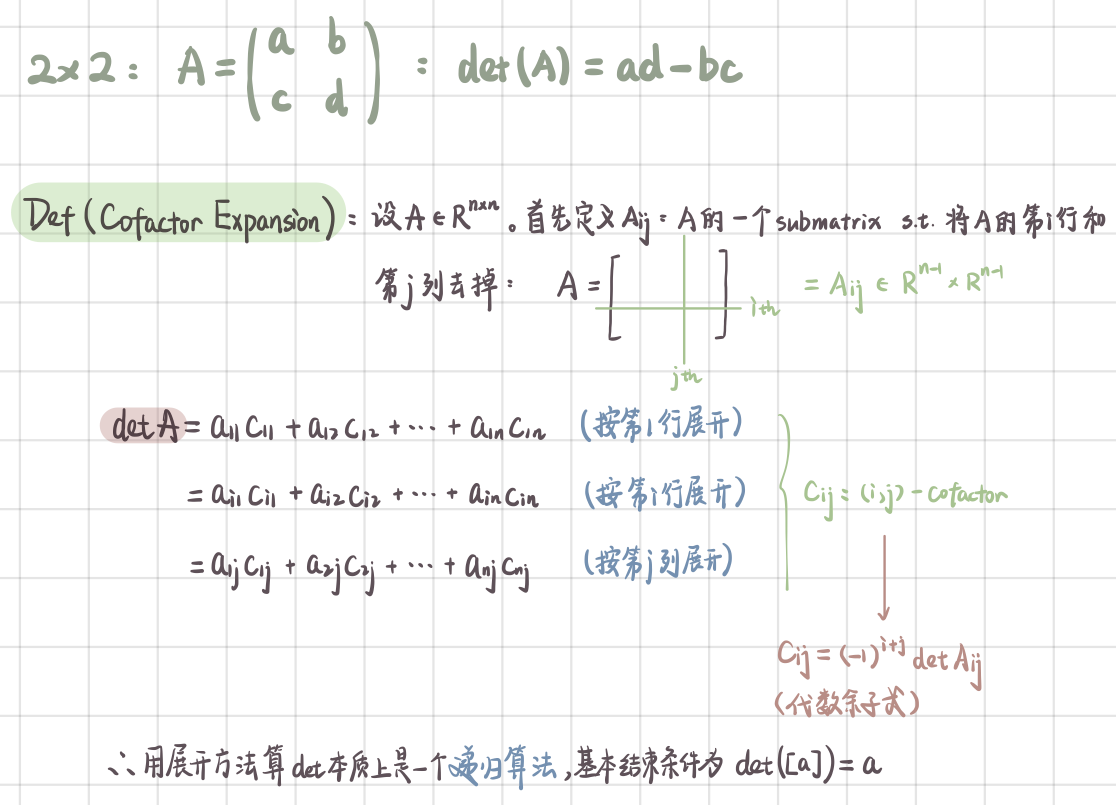 2×2: A = (a b c d) : det(A) = ad - bc
Def (Cofactor Expansion): 设 A ∈ R^{n×n}。首先定义 A_{ij}: A的一个submatrix s.t. 将A的第i行和
第j列去掉: A = [ ] i-th = A_{ij} ∈ R^{n-1} × R^{n-1}
j-th
det A = a_{11} C_{11} + a_{12} C_{12} + ··· + a_{1n} C_{1n} (按第1行展开)
= a_{i1} C_{i1} + a_{i2} C_{i2} + ··· + a_{in} C_{in} (按第i行展开) C_{ij}: (i,j)-cofactor
= a_{1j} C_{1j} + a_{2j} C_{2j} + ··· + a_{nj} C_{nj} (按第j列展开)
C_{ij} = (-1)^{i+j} det A_{ij}
(代数余子式)
∴ 用展开方法算 det 本质上是一个递归算法, 基本结束条件为 det([a]) = a